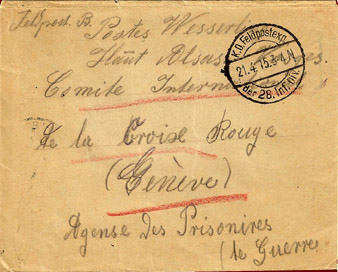 Feldpost B.
Postes Wesserl
Haut Alsas
Comite Intern
de la Croise Rouge
(Genève)
Agense des Prisonires
(de Guerre
K.D. Feldpostexp.
21.4.15.3-4.N
der 28. Inf. Div.